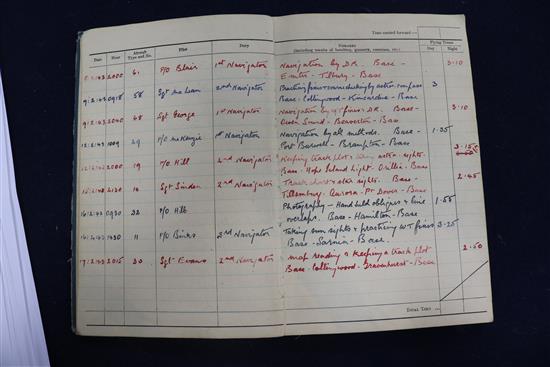 Time carried forward :—
Date Hour Aircraft Type and No. Pilot Duty Remarks (including results of bombing, gunnery, exercises, etc.) Flying Times
Day Night
2000 61 P/O Blair 1st Navigator Navigation by D.R. Base - 3-10
Simcoe - Tilbury - Base
9:2:43 0918 58 Sgt McLean 2nd Navigator 3
Base - Collingwood - Kincardine - Base
9:2:43 2040 68 Sgt George 1st Navigator D.R. Base - 3.10
Owen Sound - Beaverton - Base
12:2:43 1009 29 P/O McKenzie 1st Navigator Navigation by all methods. Base - 1.35
Port Burwell - Brampton - Base
2000 19 P/O Hill 2nd Navigator Keeping track plot & taking astro-sights. 3.15
Base - Hope Island Light - Orillia - Base
2130 14 Sgt Sinden 2nd Navigator Track chart & star sights. Base - 2.45
Tillsonburg - Aurora - Pt Dover - Base
16:2:43 0930 22 P/O Photography - Hand held obliques & line 1.55
overlaps. Base - Hamilton - Base
16:2:43 1430 11 P/O Binks 2nd Navigator Taking sun sights & practicing W/T fixes 3.25
Base - Sarnia - Base.
17:2:43 2015 20 Sgt Evans 2nd Navigator Map reading & keeping a track plot 2.50
Base - Collingwood - Gravenhurst - Base
Total Time ...